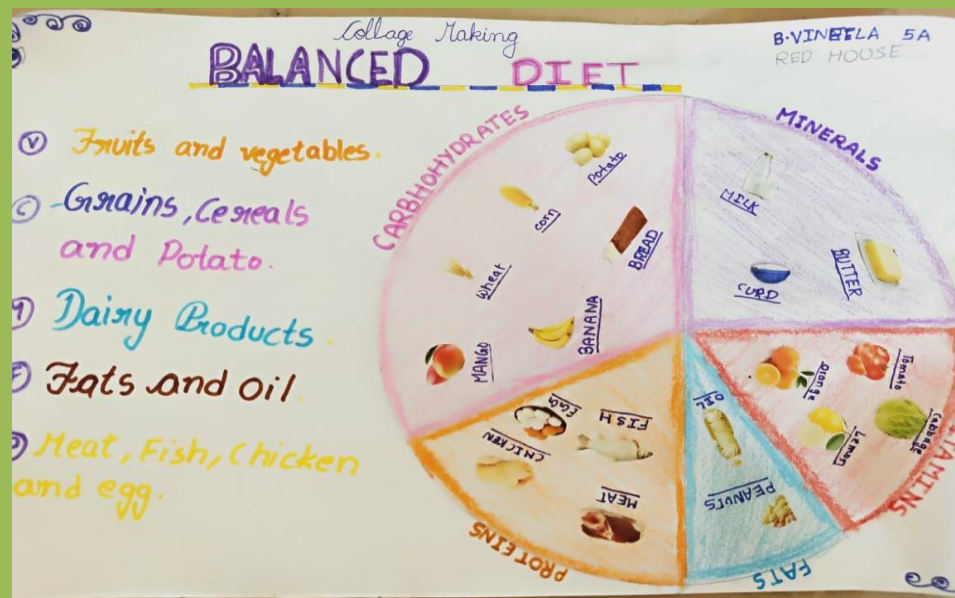 Collage Making
BALANCED DIET
B.VINEELA 5A
RED HOUSE
V Fruits and vegetables.
C Grains, Cereals
and Potato.
Dairy Products.
Fats and oil.
Meat, Fish, Chicken
and egg.
CARBHOHYDRATES
Potato
corn
BREAD
wheat
BANANA
MANGO
MINERALS
MILK
BUTTER
CURD
orange
Tomato
Lemon
Cabbage
OIL
PEANUTS
FATS
EGG
FISH
CHICKEN
MEAT
PROTEINS